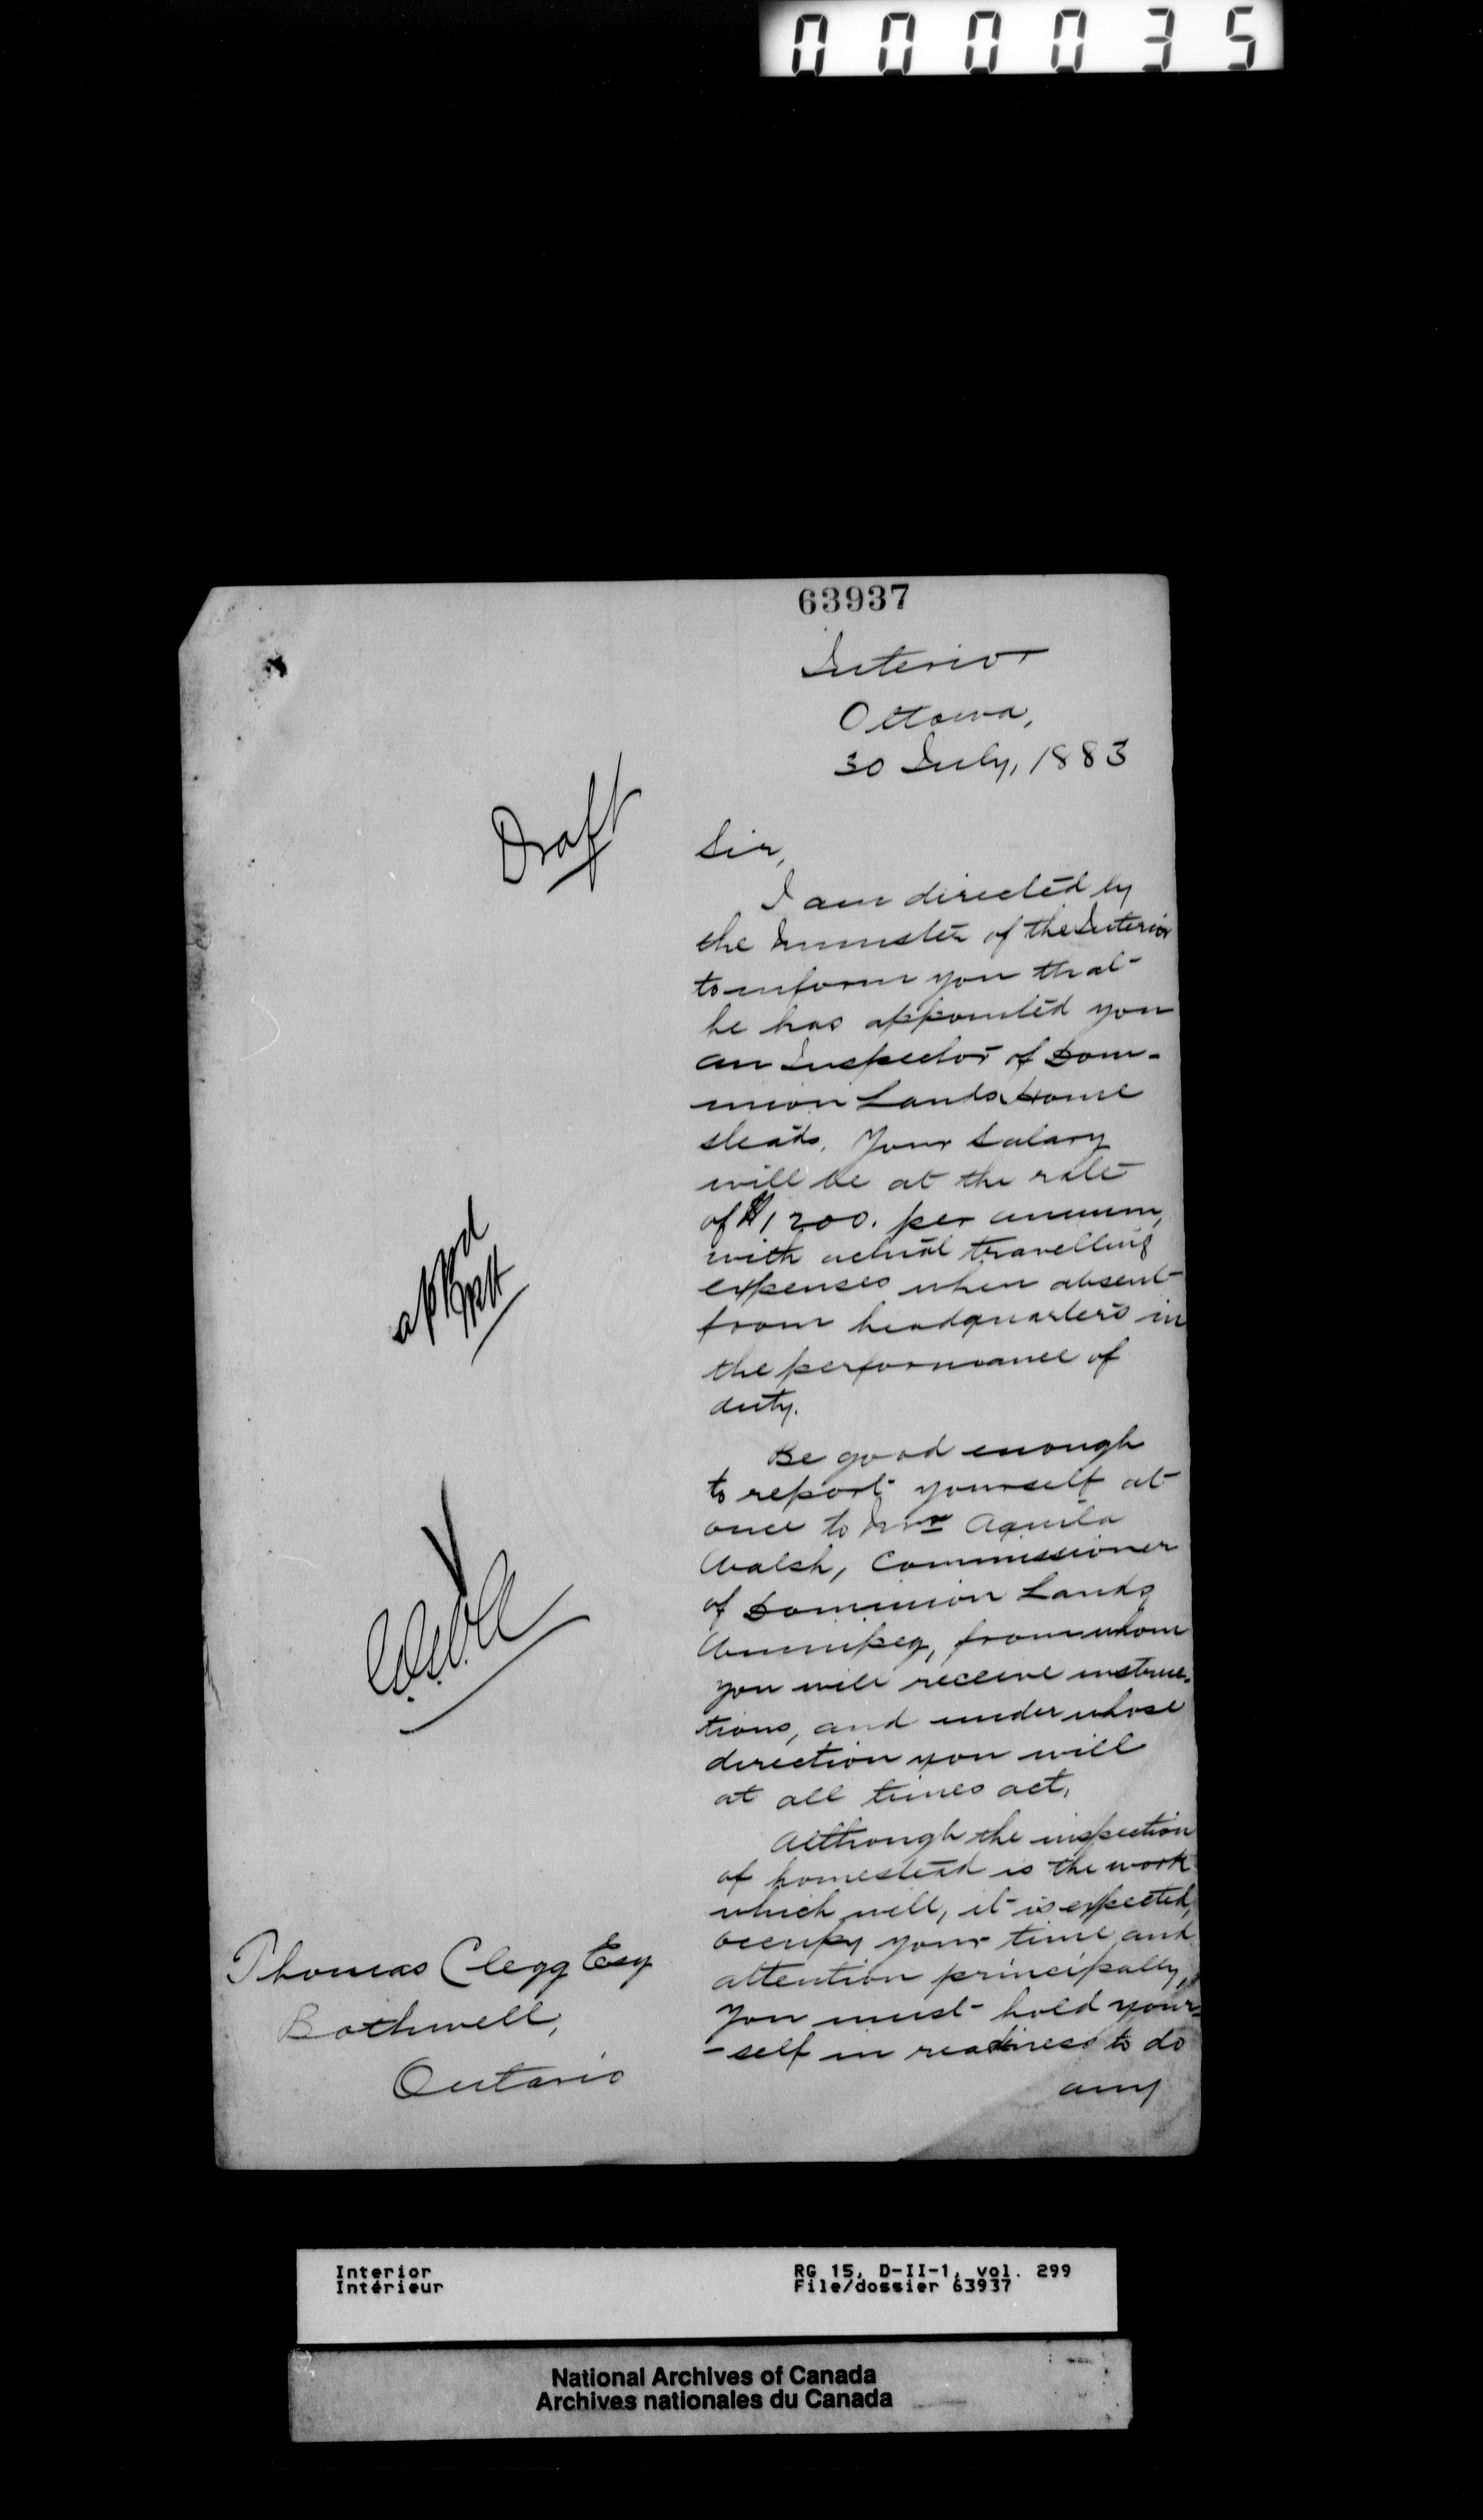 000035
63937
Interior
Ottawa,
30 July, 1883
Draft
Sir,
I am directed by
the Minister of the Interior
to inform you that
he has appointed you
an Inspector of Dom-
inion Lands Home
steads. Your salary
will be at the rate
of $1200. per annum,
with actual travelling
expenses when absent
from headquarters in
the performance of
duty.
Be good enough
to report yourself at
once to Mr Aquila
Walsh, Commissioner
of Dominion Lands
Winnipeg, from whom
you will receive instruc-
tions, and under whose
direction you will
at all times act.
Although the inspection
of homestead is the work
which will, it is expected,
occupy your time and
attention principally,
you must hold your-
-self in readiness to do
any
Thomas Clegg Esq
Bothwell,
Ontario
Interior
Intérieur
RG 15, D-II-1, vol. 299
File/dossier 63937
National Archives of Canada
Archives nationales du Canada